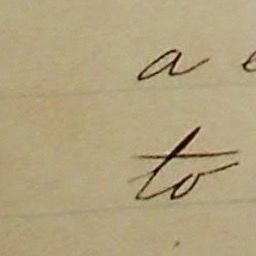 a
to